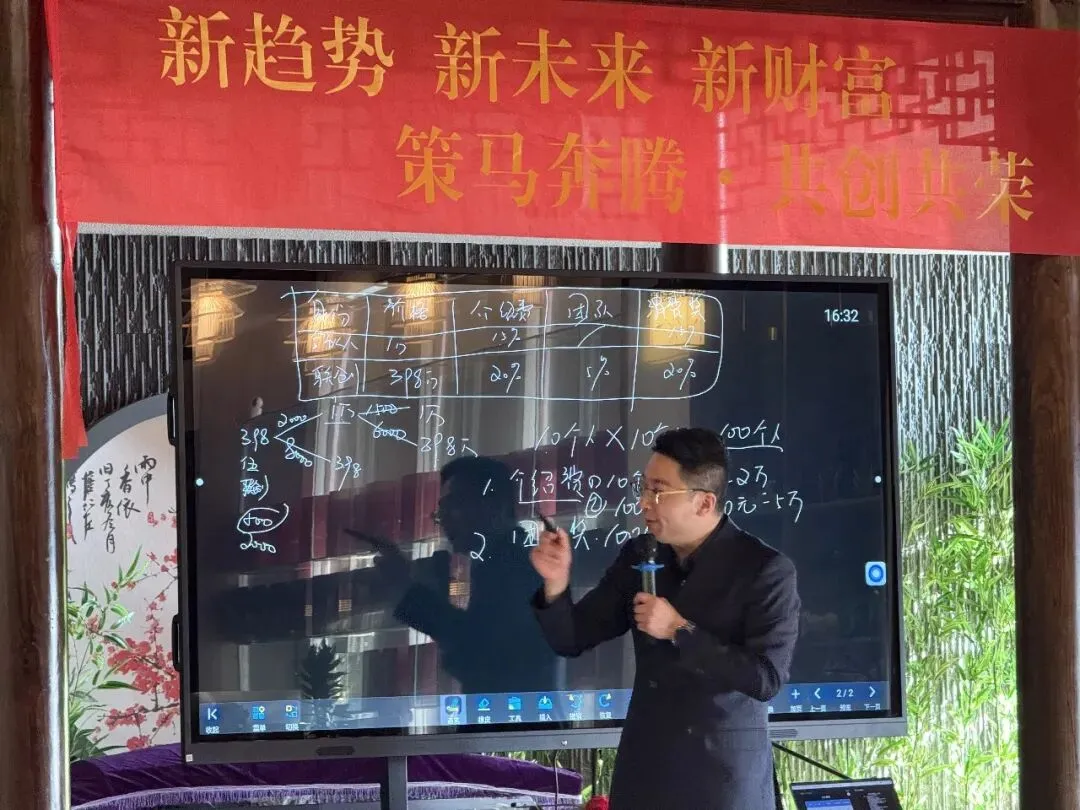 新趋势 新未来 新财富
策马奔腾·共创共荣
16:32
身份 价格 介绍费 团队
合伙人 1万 15%
联创 398万 20% 5% 20%
2000 1万 1500 1万
398 8000 6000 398万
位 398
10个人×10 100个人
1. 介绍费① 10 2万
② 100 元=5万
2. 团 奖:100
500
2000
雨中
香依
收起 菜单 切换 橡皮 工具 插入 恢复 加页 上一页 2/2 下一页